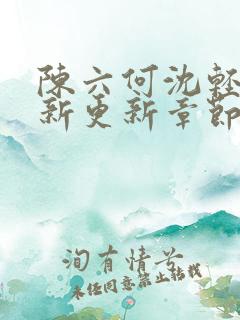 陳六何沈輕
新更新章節
洵有情兮
未经同意禁止转载